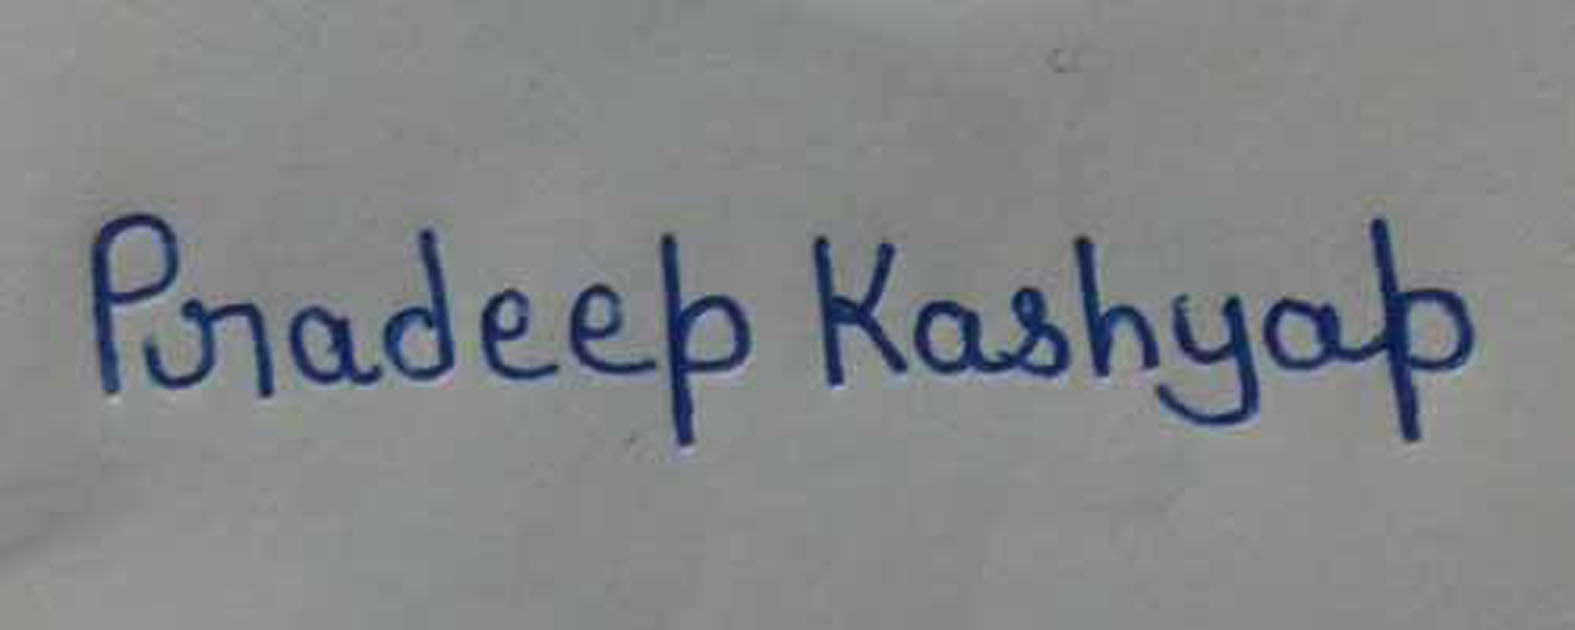 Pradeep Kashyap